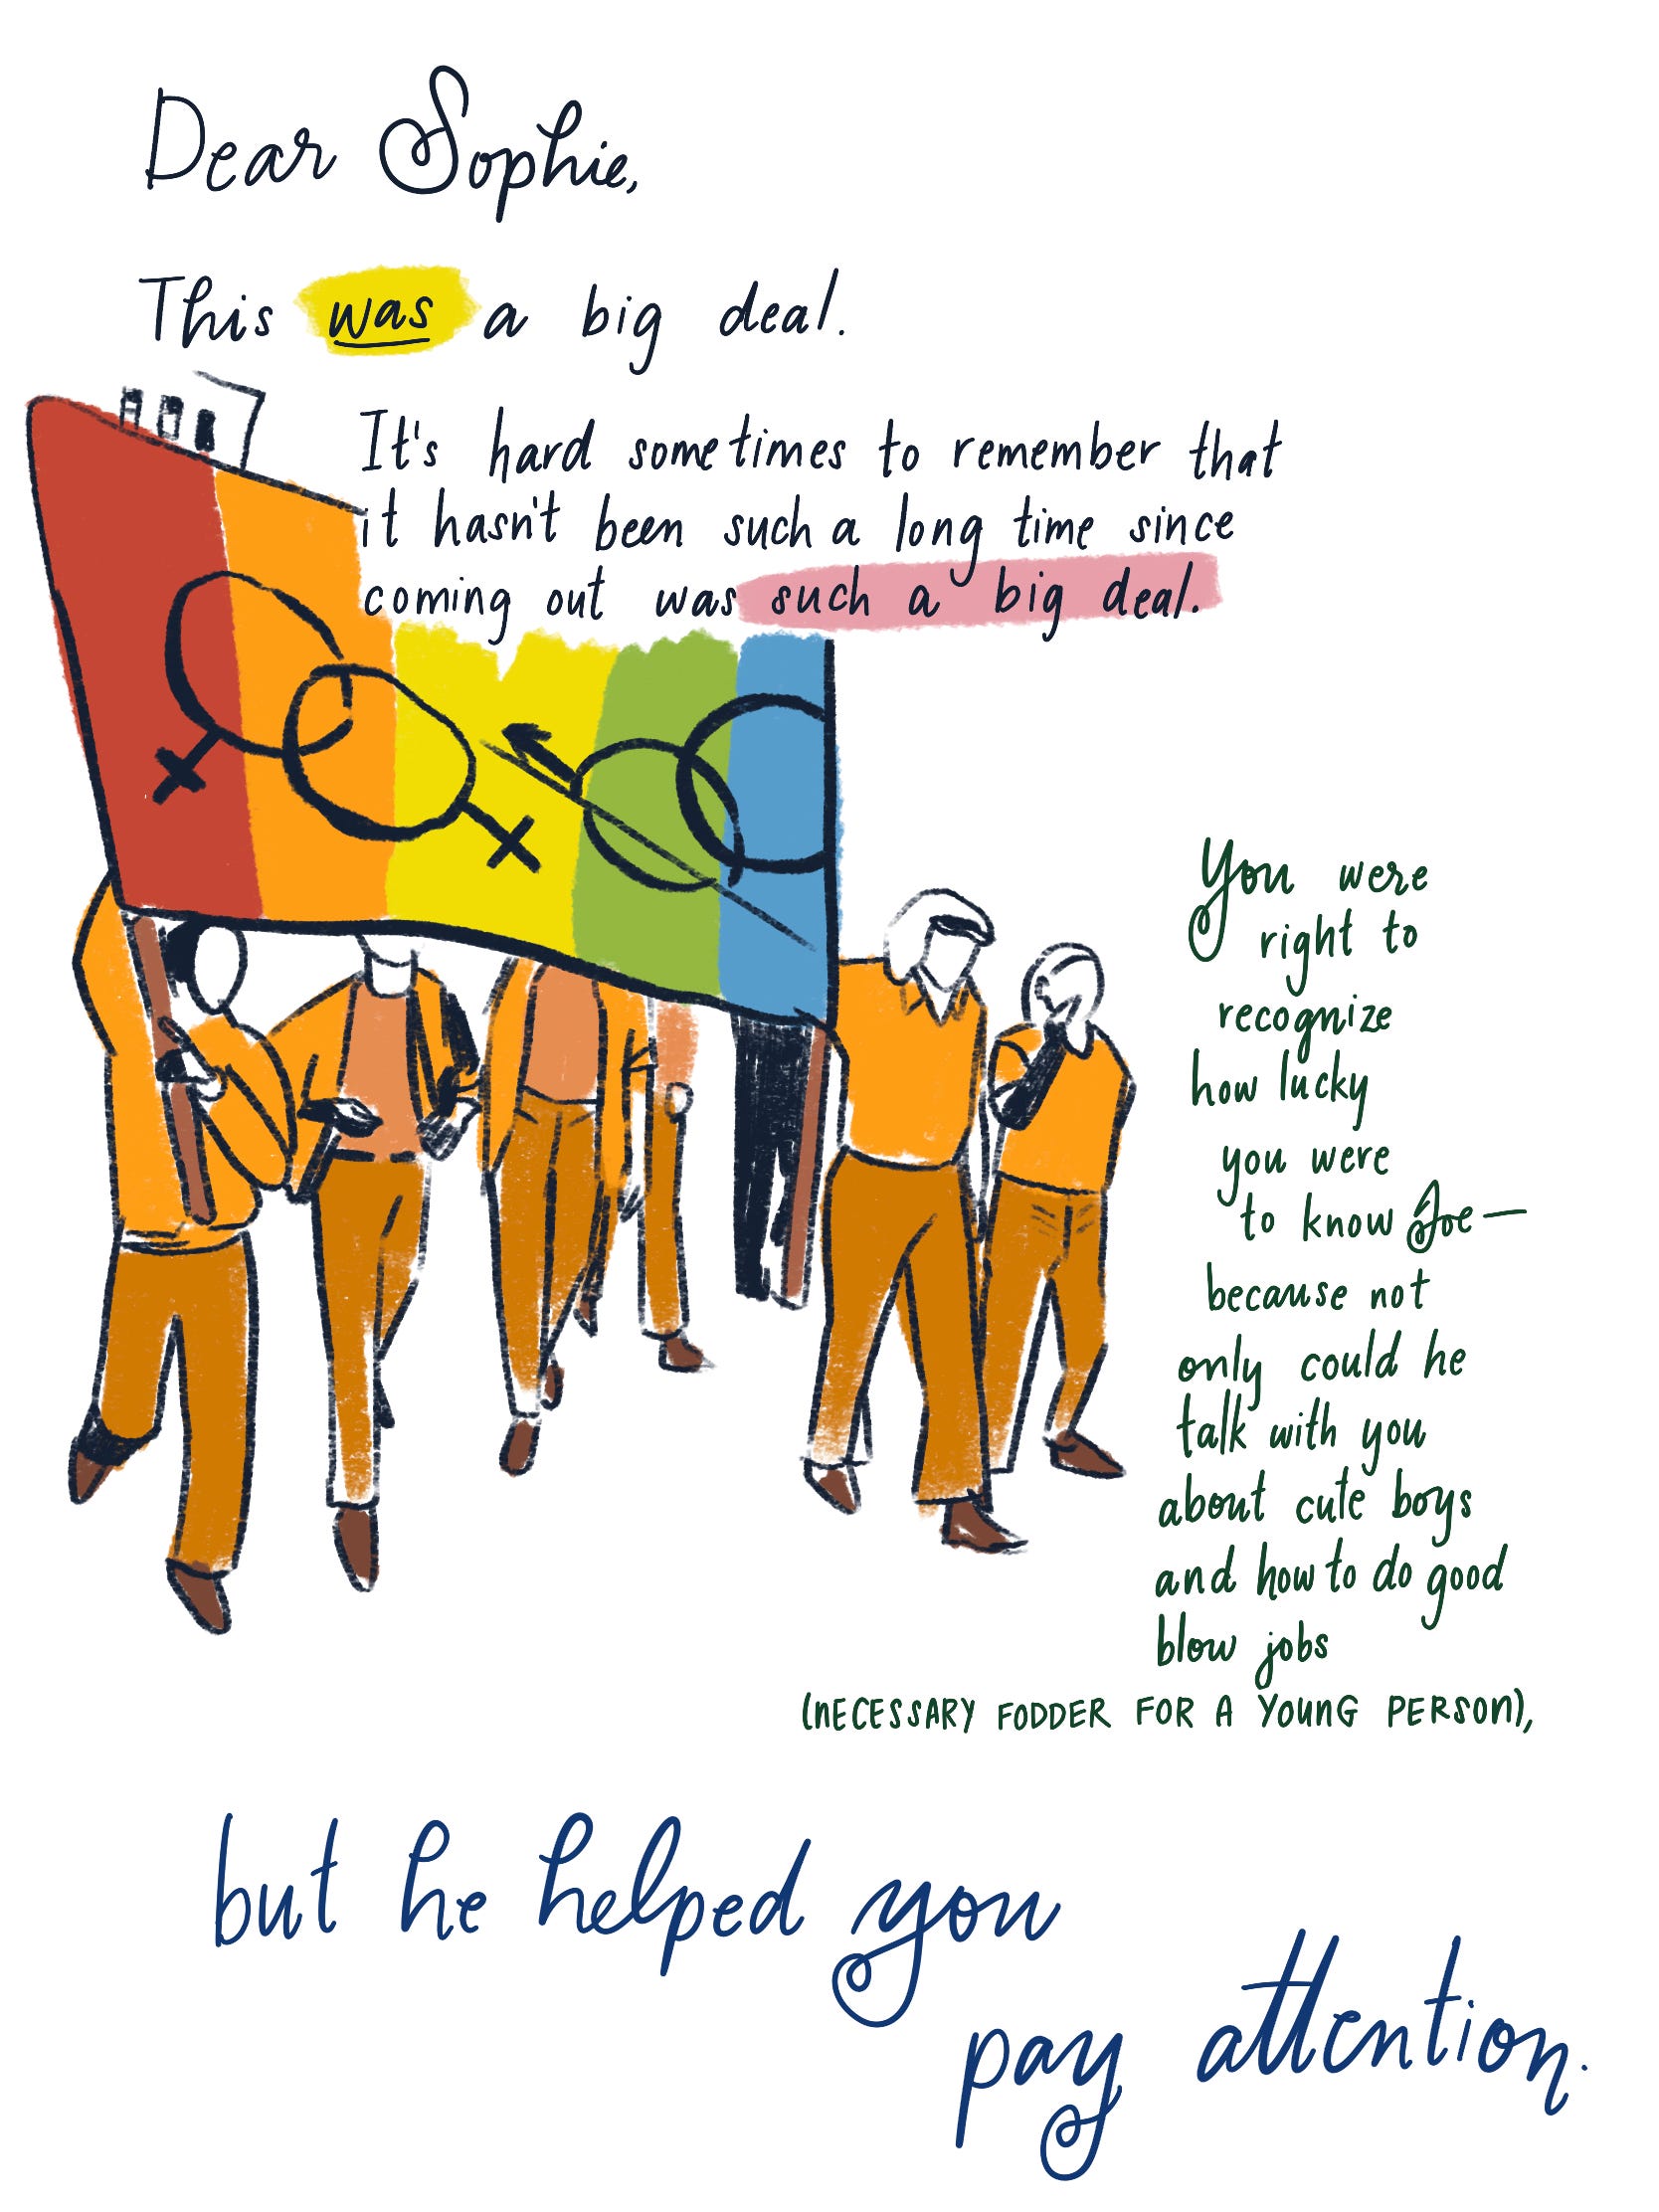 Dear Sophie,
This was a big deal.
It's hard sometimes to remember that
it hasn't been such a long time since
coming out was such a big deal.
You were
right to
recognize
how lucky
you were
to know Joe—
because not
only could he
talk with you
about cute boys
and how to do good
blow jobs
(NECESSARY FODDER FOR A YOUNG PERSON),
but he helped you
pay attention.